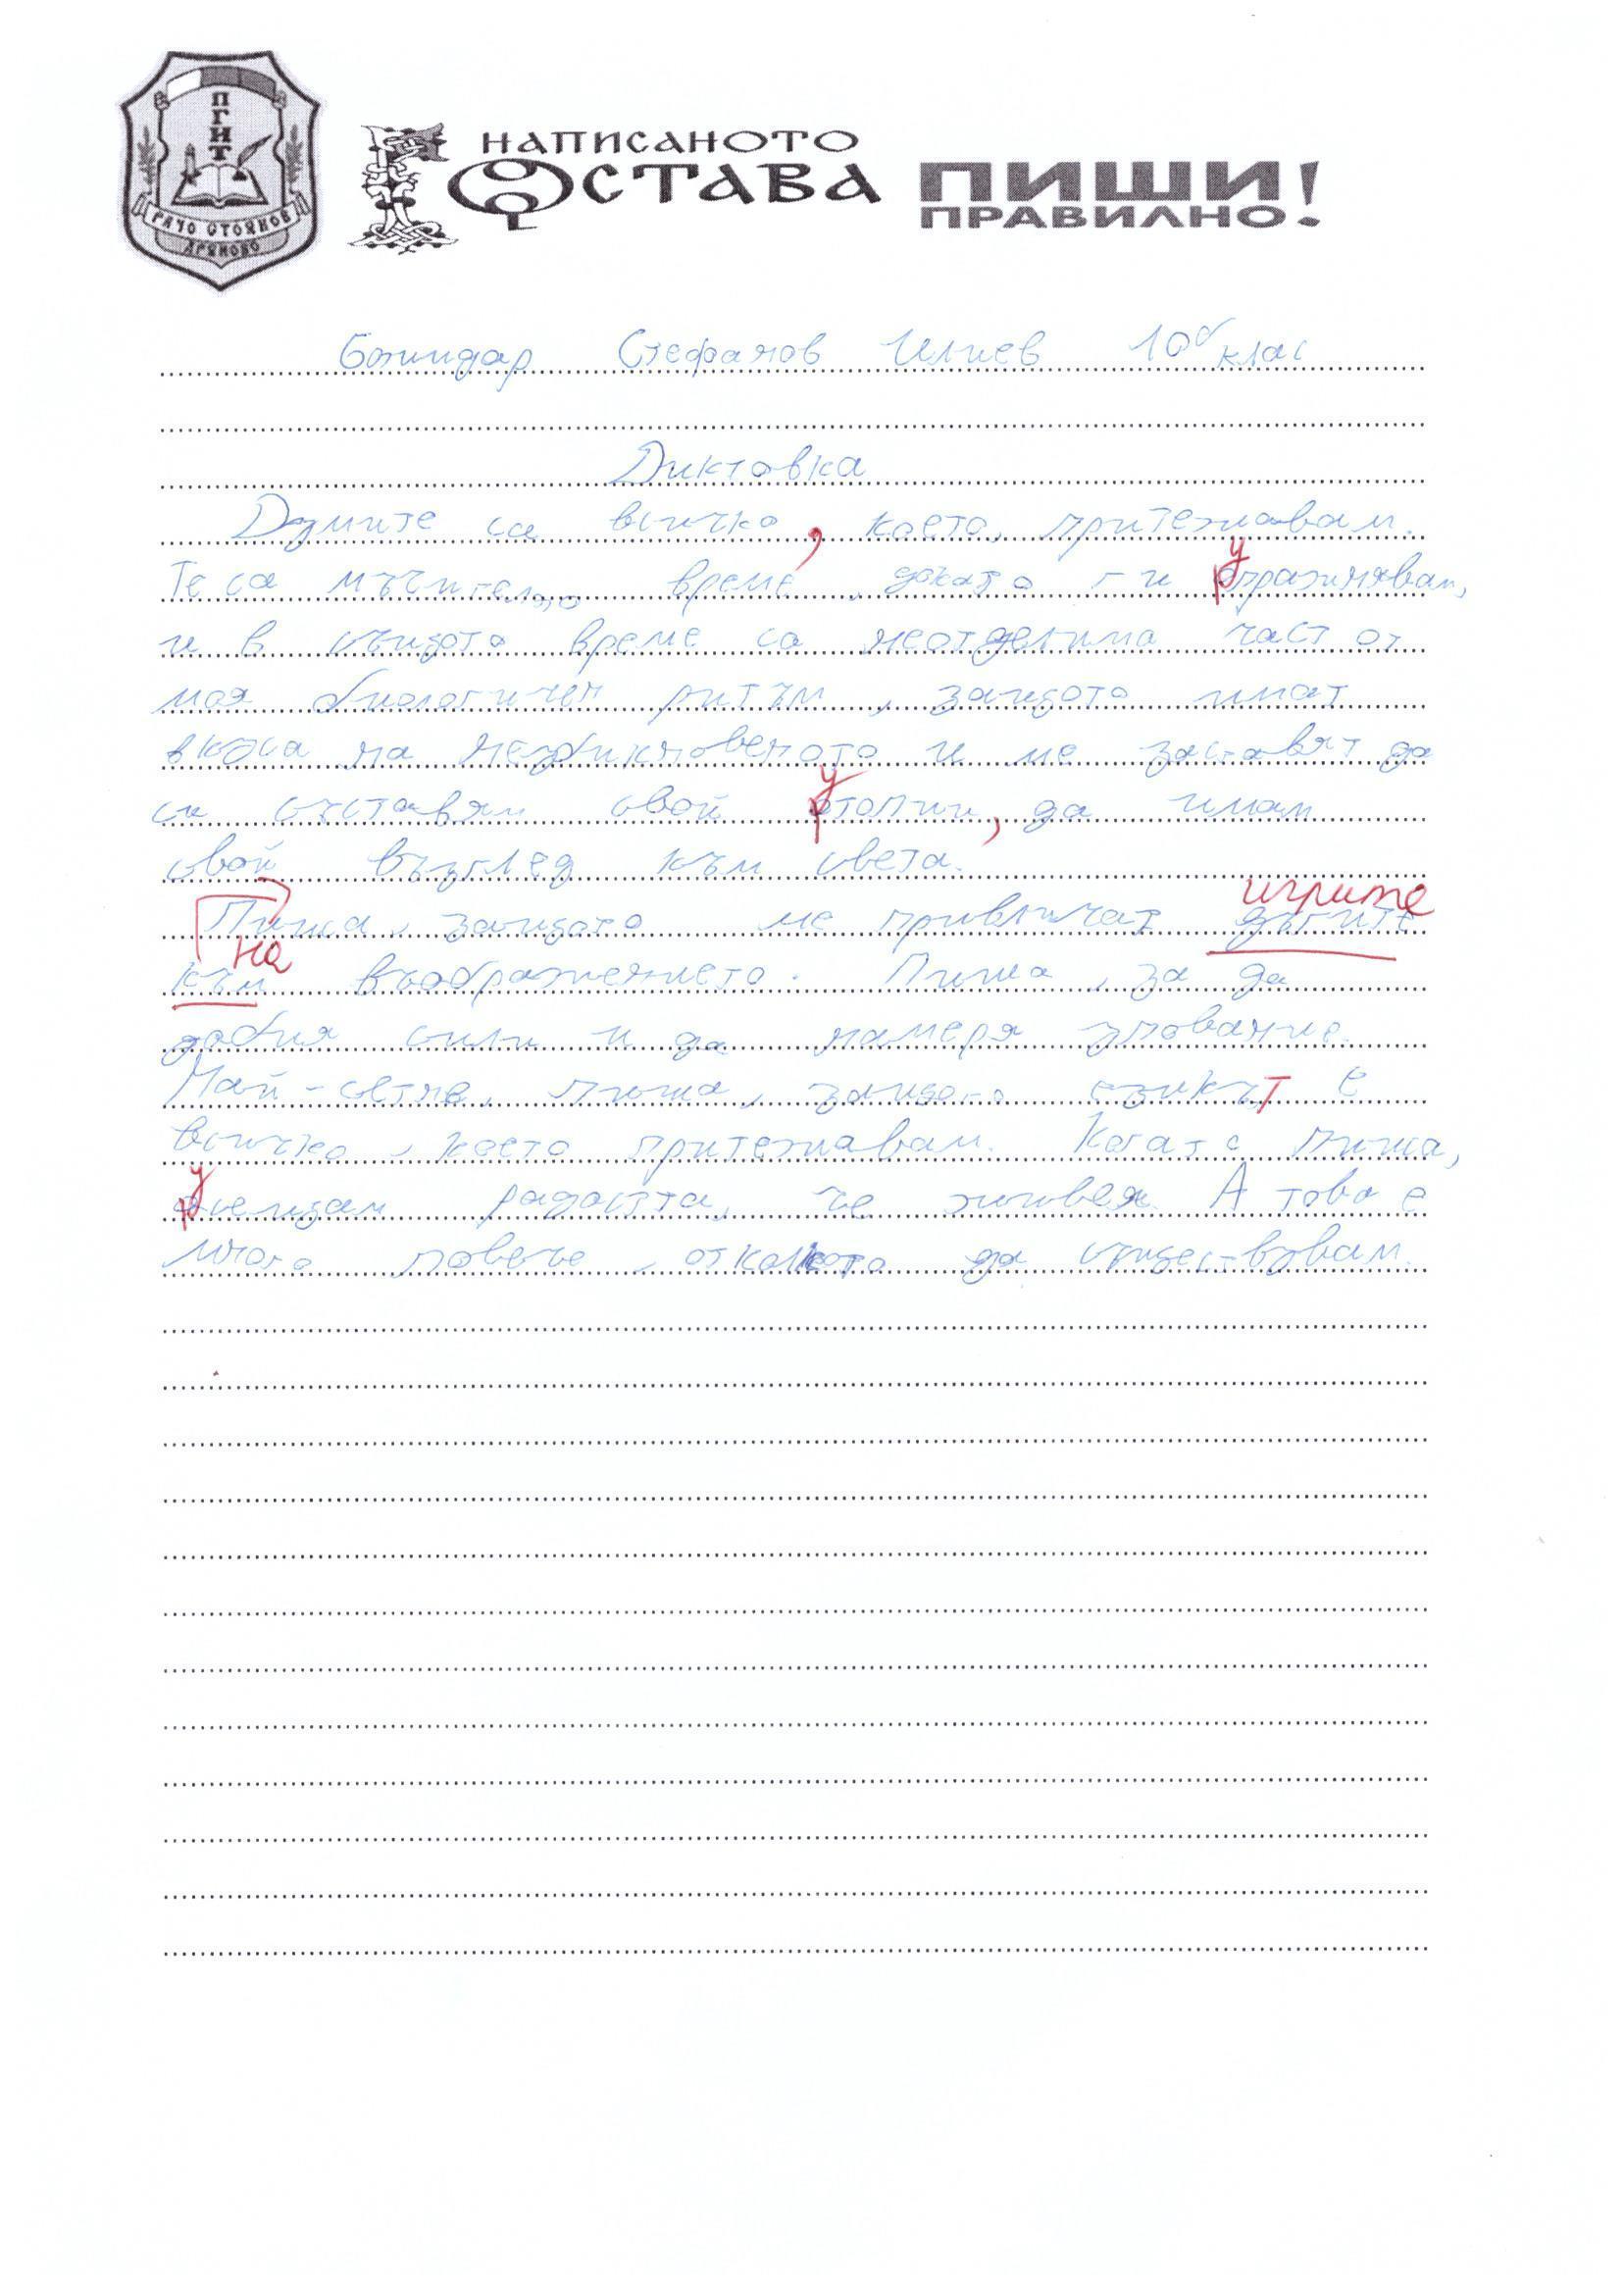 ПГИТ
РАЧО СТОЯНОВ
ДРЯНОВО
НАПИСАНОТО
ОСТАВА
ПИШИ
ПРАВИЛНО!
Божидар Стефанов Илиев 10б клас
Диктовка
Думите са всичко, което притежавам.
у
Те са мъчително време, докато ги опражнявам,
и в същото време са неотделима част от
моя биологичен ритъм, защото имат
вкуса на необикновеното и ме заставят да
у
си съставям свой отопии, да имам
свой възглед към света.
игрите
Пиша, защото ме привличат дъгите
на
към въображението. Пиша, за да
добия сили и да намеря упование.
Най-сетне, пиша, защото езикът е
всичко, което притежавам. Когато пиша,
у
осещам радостта, че живея. А това е
много повече, отколкото да съществувам.